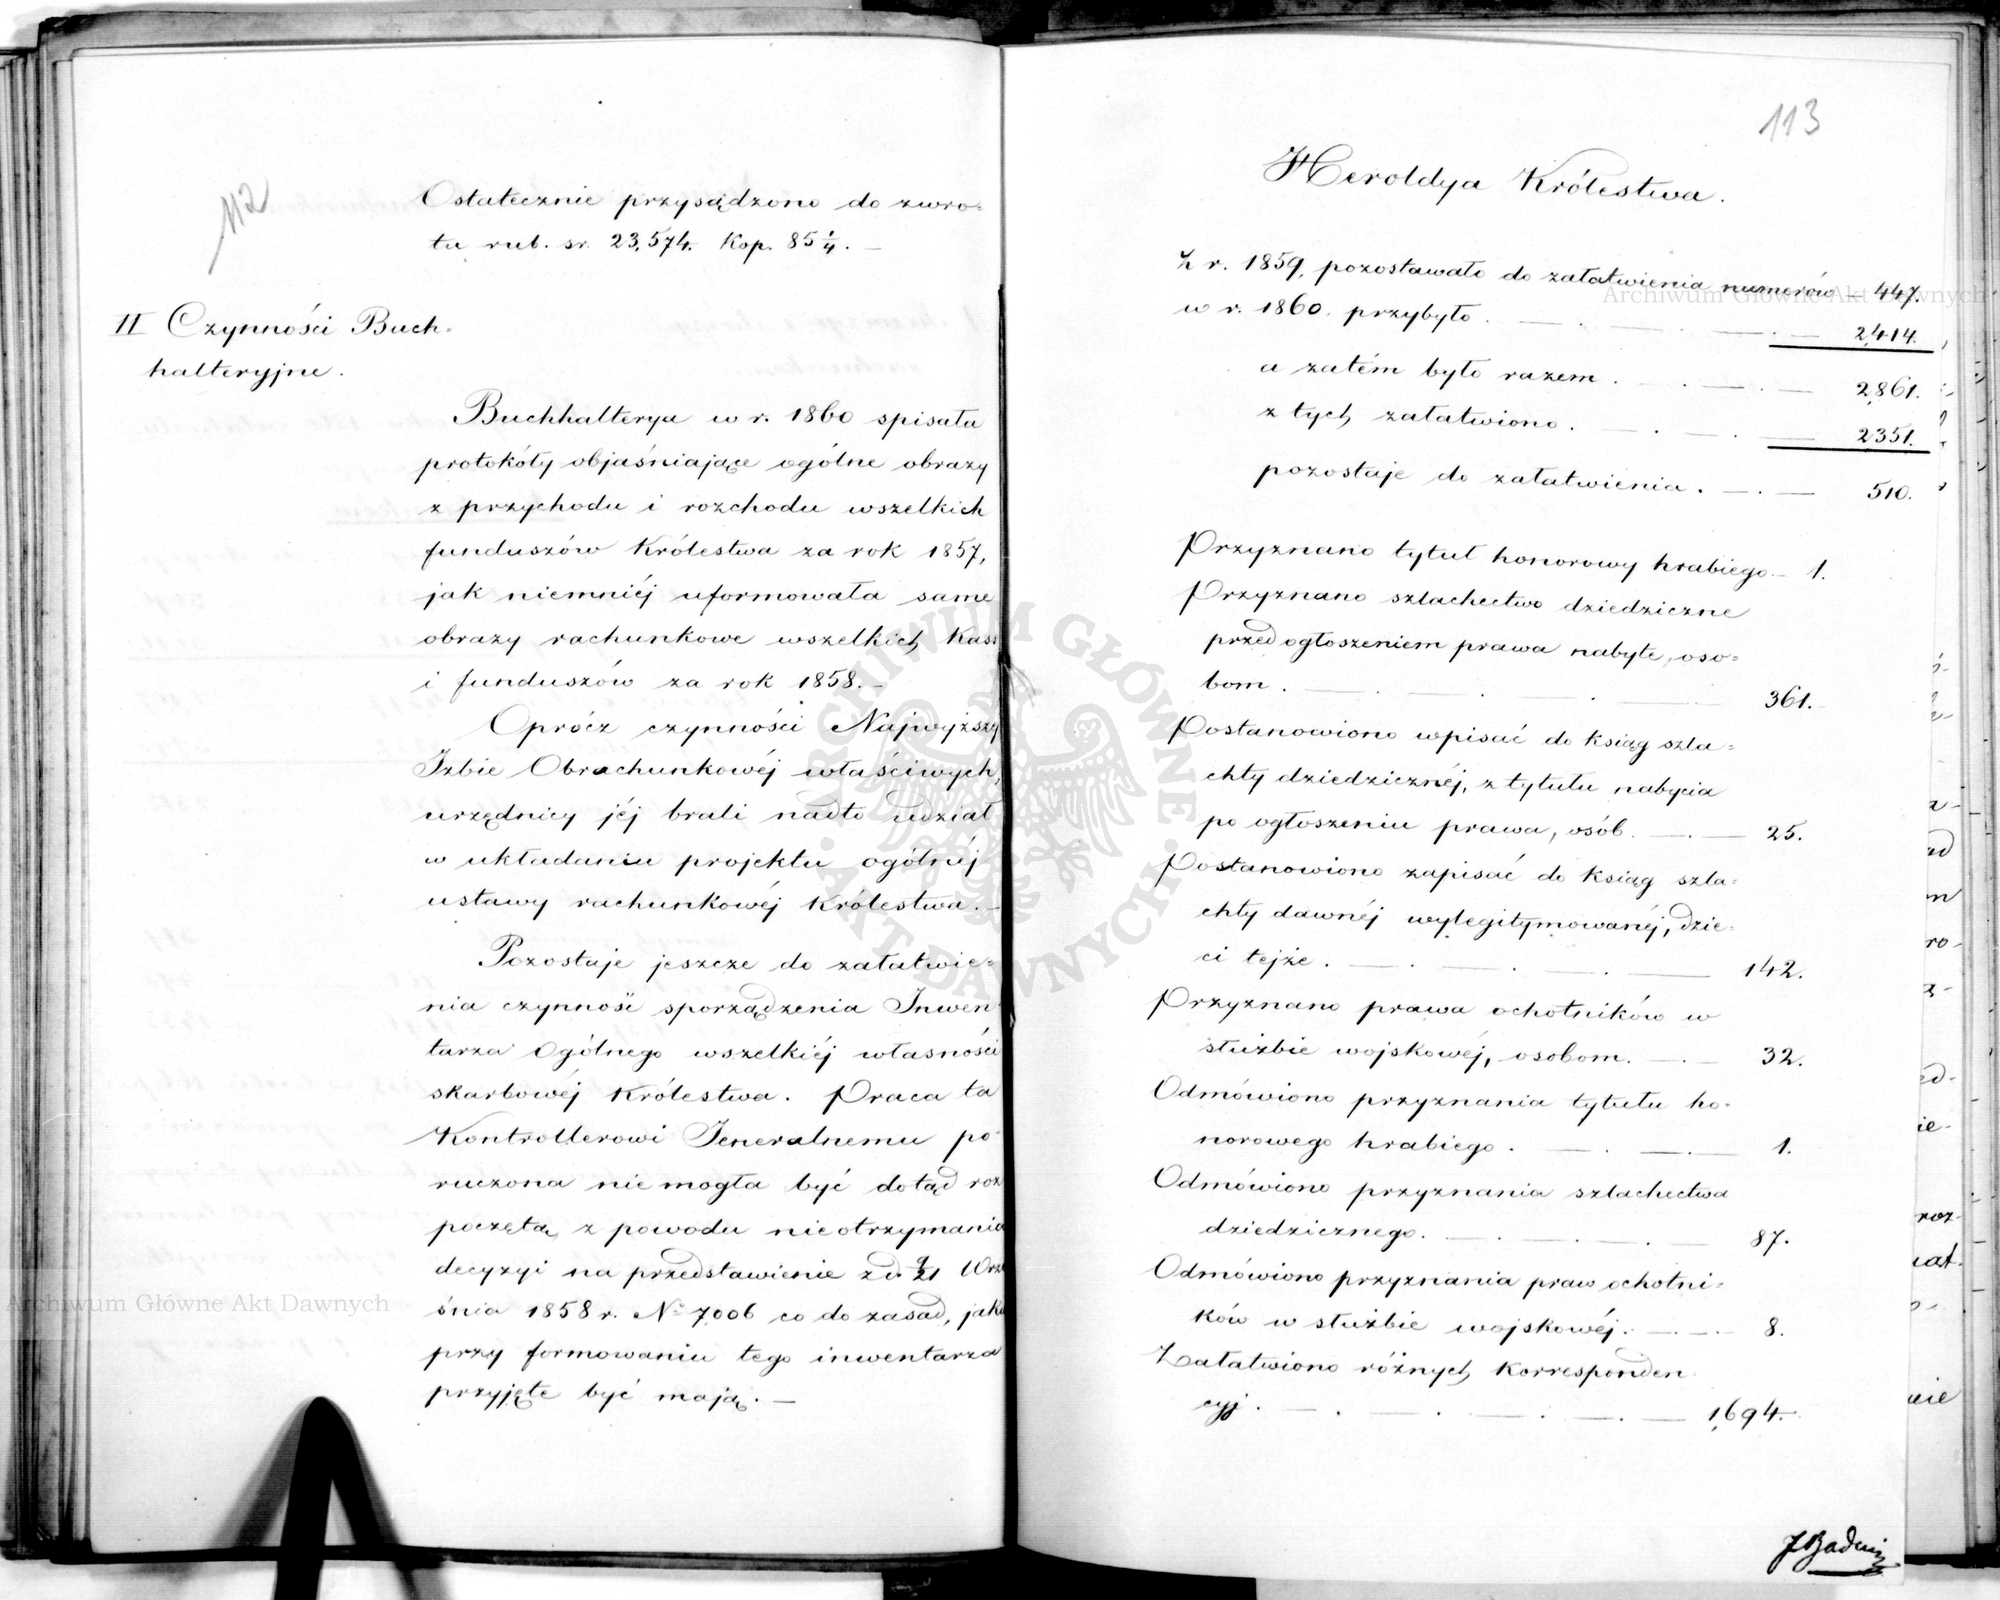 112
Ostatecznie przysądzono do zwro-
tu rub. sr. 23,574. Kop. 85 1/4. —
II Czynności Buch-
halteryjne.
Buchhalterya w r. 1860 spisała
protokóły objaśniające ogólne obrazy
z przychodu i rozchodu wszelkich
funduszów Królestwa za rok 1857,
jak niemniéj uformowała same
obrazy rachunkowe wszelkich Kass
i funduszów za rok 1858. —
Oprócz czynności Najwyższéj
Izbie Obrachunkowéj właściwych,
urzędnicy jéj brali nadto udział
w układaniu projektu ogólnéj
ustawy rachunkowéj Królestwa. —
Pozostaje jeszcze do załatwie-
nia czynność sporządzenia Inwen-
tarza Ogólnego wszelkiéj własności
skarbowéj Królestwa. Praca ta
Kontrollerowi Jeneralnemu po-
ruczona nie mogła być dotąd roz
poczętą, z powodu nieotrzymania
decyzyi na przedstawienie z d. 9/21 Wrze
śnia 1858 r. № 7006 co do zasad, jakie
przy formowaniu tego inwentarza
przyjęte być mają. —
113
Heroldya Królestwa.
Z r. 1859, pozostawało do załatwienia numerów — 447.
w r. 1860. przybyło . — . — . — 2,414.
a zatém było razem . — . — . — 2,861.
z tych załatwiono . — . — . — 2351.
pozostaje do załatwienia . — . — 510.
Przyznano tytuł honorowy hrabiego — 1.
Przyznano szlachectwo dziedziczne
przed ogłoszeniem prawa nabyte, oso-
bom . — . — . — 361.
Postanowiono wpisać do ksiąg szla-
chty dziedzicznéj, z tytułu nabycia
po ogłoszeniu prawa, osób. — . — 25.
Postanowiono zapisać do ksiąg szla-
chty dawnéj wylegitymowanéj, dzie-
ci tejże . — . — . — 142.
Przyznano prawa ochotników w
służbie wojskowéj, osobom. — . — 32.
Odmówiono przyznania tytułu ho-
norowego hrabiego . — . — . — 1.
Odmówiono przyznania szlachectwa
dziedzicznego . — . — . — 87.
Odmówiono przyznania praw ochotni-
ków w służbie wojskowéj . — . — 8.
Załatwiono różnych korresponden
cyj . — . — . — . — 1,694.
Archiwum Główne Akt Dawnych
Archiwum Główne Akt Dawnych
ARCHIWUM GŁÓWNE · AKT DAWNYCH ·